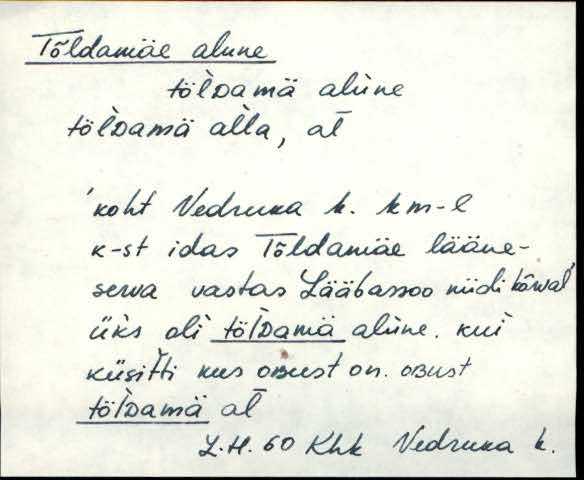 Tõldamäe alune
töl̀ᴅamä alùne
töl̀ᴅamä al̀la, at̀
'koht Vedruka k. km-l
k-st idas Tõldamäe lääne-
serva vastas Lääbassoo niidi kõrval'
üks oli töl̀ᴅamä alùne. kui
küsiťti kus oʙust on. oʙust
töl̀ᴅamä at̀
L.H. 60 Khk Vedruka k.